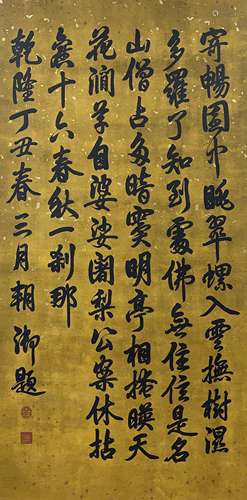 寄暢園中眺翠螺入雲撫樹濕
多羅了知到處佛無住住是名
山僧占多暗竇明亭相掩暎天
花澗草自婆娑闍梨公案休拈
舉十六春秋一剎那
乾隆丁丑春三月御題